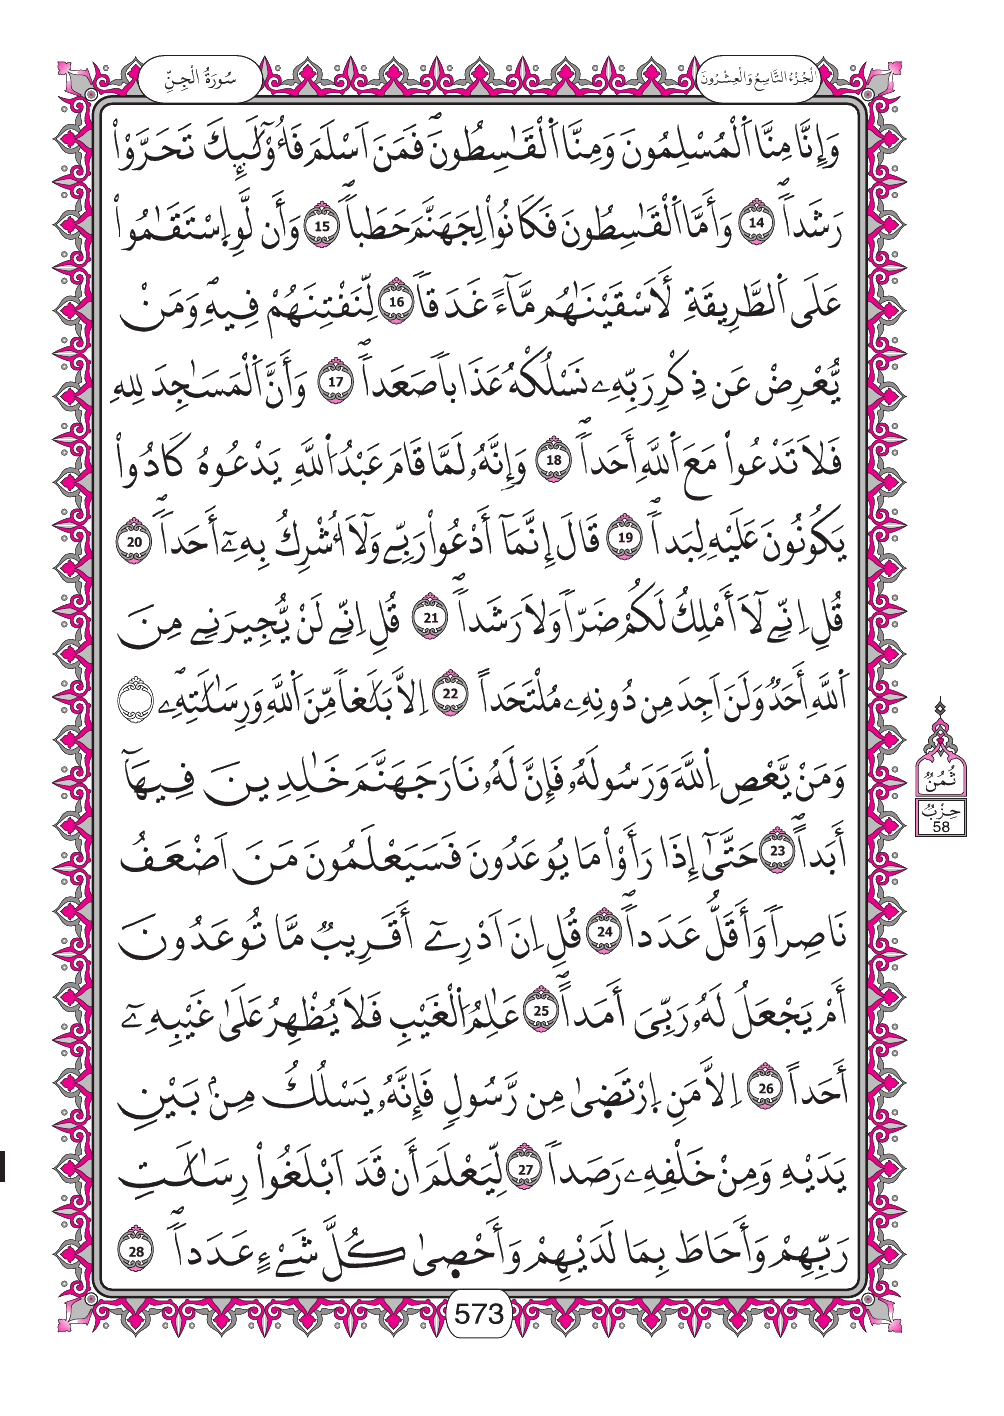 سُورَةُ الْجِنِّ
الْجُزْءُ التَّاسِعُ وَالْعِشْرُونَ
وَإِنَّا مِنَّا اَ۬لْمُسْلِمُونَ وَمِنَّا اَ۬لْقَٰسِطُونَۖ فَمَنَ اَسْلَمَ فَأُوْلَٰٓئِكَ تَحَرَّوْاْ
رَشَداٗۖ 14 وَأَمَّا اَ۬لْقَٰسِطُونَ فَكَانُواْ لِجَهَنَّمَ حَطَباٗۖ 15 وَأَن لَّوِ اِ۪سْتَقَٰمُواْ
عَلَى اَ۬لطَّرِيقَةِ لَأَسْقَيْنَٰهُم مَّآءً غَدَقاٗ 16 لِّنَفْتِنَهُمْ فِيهِۖ وَمَنْ
يُّعْرِضْ عَن ذِكْرِ رَبِّهِۦ نَسْلُكْهُ عَذَاباٗ صَعَداٗۖ 17 وَأَنَّ اَ۬لْمَسَٰجِدَ لِلهِ
فَلَا تَدْعُواْ مَعَ اَ۬للَّهِ أَحَداٗۖ 18 وَإِنَّهُۥ لَمَّا قَامَ عَبْدُ اُ۬للَّهِ يَدْعُوهُ كَادُواْ
يَكُونُونَ عَلَيْهِ لِبَداٗۖ 19 قَالَ إِنَّمَآ أَدْعُواْ رَبِّے وَلَآ أُشْرِكُ بِهِۦٓ أَحَداٗۖ 20
قُلِ اِنِّے لَآ أَمْلِكُ لَكُمْ ضَرّاٗ وَلَا رَشَداٗۖ 21 قُلِ اِنِّے لَنْ يُّجِيرَنِے مِنَ
اَ۬للَّهِ أَحَدٌ وَلَنَ اَجِدَ مِن دُونِهِۦ مُلْتَحَداً 22 اِلَّا بَلَٰغاٗ مِّنَ اَ۬للَّهِ وَرِسَٰلَٰتِهِۦۖ
وَمَنْ يَّعْصِ اِ۬للَّهَ وَرَسُولَهُۥ فَإِنَّ لَهُۥ نَارَ جَهَنَّمَ خَٰلِدِينَ فِيهَآ
أَبَداًۖ 23 حَتَّىٰٓ إِذَا رَأَوْاْ مَا يُوعَدُونَ فَسَيَعْلَمُونَ مَنَ اَضْعَفُ
نَاصِراٗ وَأَقَلُّ عَدَداٗۖ 24 قُلِ اِنَ اَدْرِےٓ أَقَرِيبٌ مَّا تُوعَدُونَ
أَمْ يَجْعَلُ لَهُۥ رَبِّيَ أَمَداًۖ 25 عَٰلِمُ اُ۬لْغَيْبِ فَلَا يُظْهِرُ عَلَىٰ غَيْبِهِۦٓ
أَحَداً 26 اِلَّا مَنِ اِ۪رْتَض۪ىٰ مِن رَّسُولٖ فَإِنَّهُۥ يَسْلُكُ مِنۢ بَيْنِ
يَدَيْهِ وَمِنْ خَلْفِهِۦ رَصَداٗ 27 لِّيَعْلَمَ أَن قَدَ اَبْلَغُواْ رِسَٰلَٰتِ
رَبِّهِمْ وَأَحَاطَ بِمَا لَدَيْهِمْ وَأَحْص۪ىٰ كُلَّ شَےْءٍ عَدَداٗۖ 28
ثُمُنُ
حِزْبُ
58
573